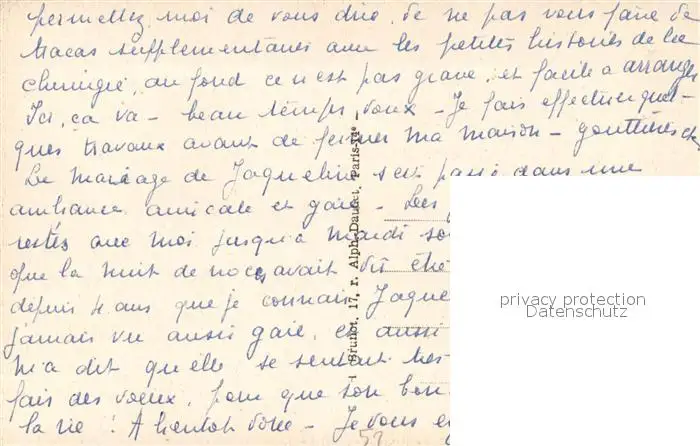 permettez moi de vous dire, de ne pas vous faire de
tracas supplémentaires avec les petites histoires de la
chirurgie, au fond ce n'est pas grave, et facile a arranger
Ici, ça va - beau temps doux - Je fais effectuer quel-
ques travaux avant de fermer ma maison - gouttières etc
Le mariage de Jaqueline s'est passé dans une
ambiance amicale et gaie - Les
restés avec moi jusqu'à mardi
que la nuit de noces avait dû être
depuis 4 ans que je connais Jaque
jamais vu aussi gaie, et aussi
m'a dit qu'elle se sentait très
fais des voeux, pour que son bon
la vie ! A bientôt donc - Je vous
Brunot, 17, r. Alph.-Daudet, Paris-14e -
privacy protection
Datenschutz